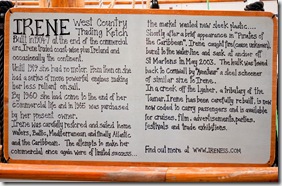 IRENE West Country
Trading Ketch
Built in 1907 at the end of the commercial
era, Irene traded coast wise plus Ireland and
occasionally the continent.
Until 1919 she had no motor. From then on she
had a series of more powerful engines making
her less reliant on sail.
By 1960 she had come to the end of her
commercial life and in 1965 was purchased
by her present owner.
Irene was carefully restored and sailed home
Waters, Baltic, Mediterranean and finally Atlantic
and the Caribbean. The attempts to make her
commercial once again were of limited success...
the market wanted new sleek plastic....
Shortly after a brief appearance in "Pirates of
the Caribbean", Irene caught fire
burnt to the waterline and sank at anchor off
St Martens in May 2003. The hulk was towed
back to Cornwall by a steel schooner
of similar size to Irene..
In a creek off the Lyher, a tributary of the
Tamar, Irene has been carefully rebuilt, is now
now coded to carry passengers and is available
for cruises, film, advertisements, parties,
festivals and trade exhibitions.
Find out more at www.IRENESS.com